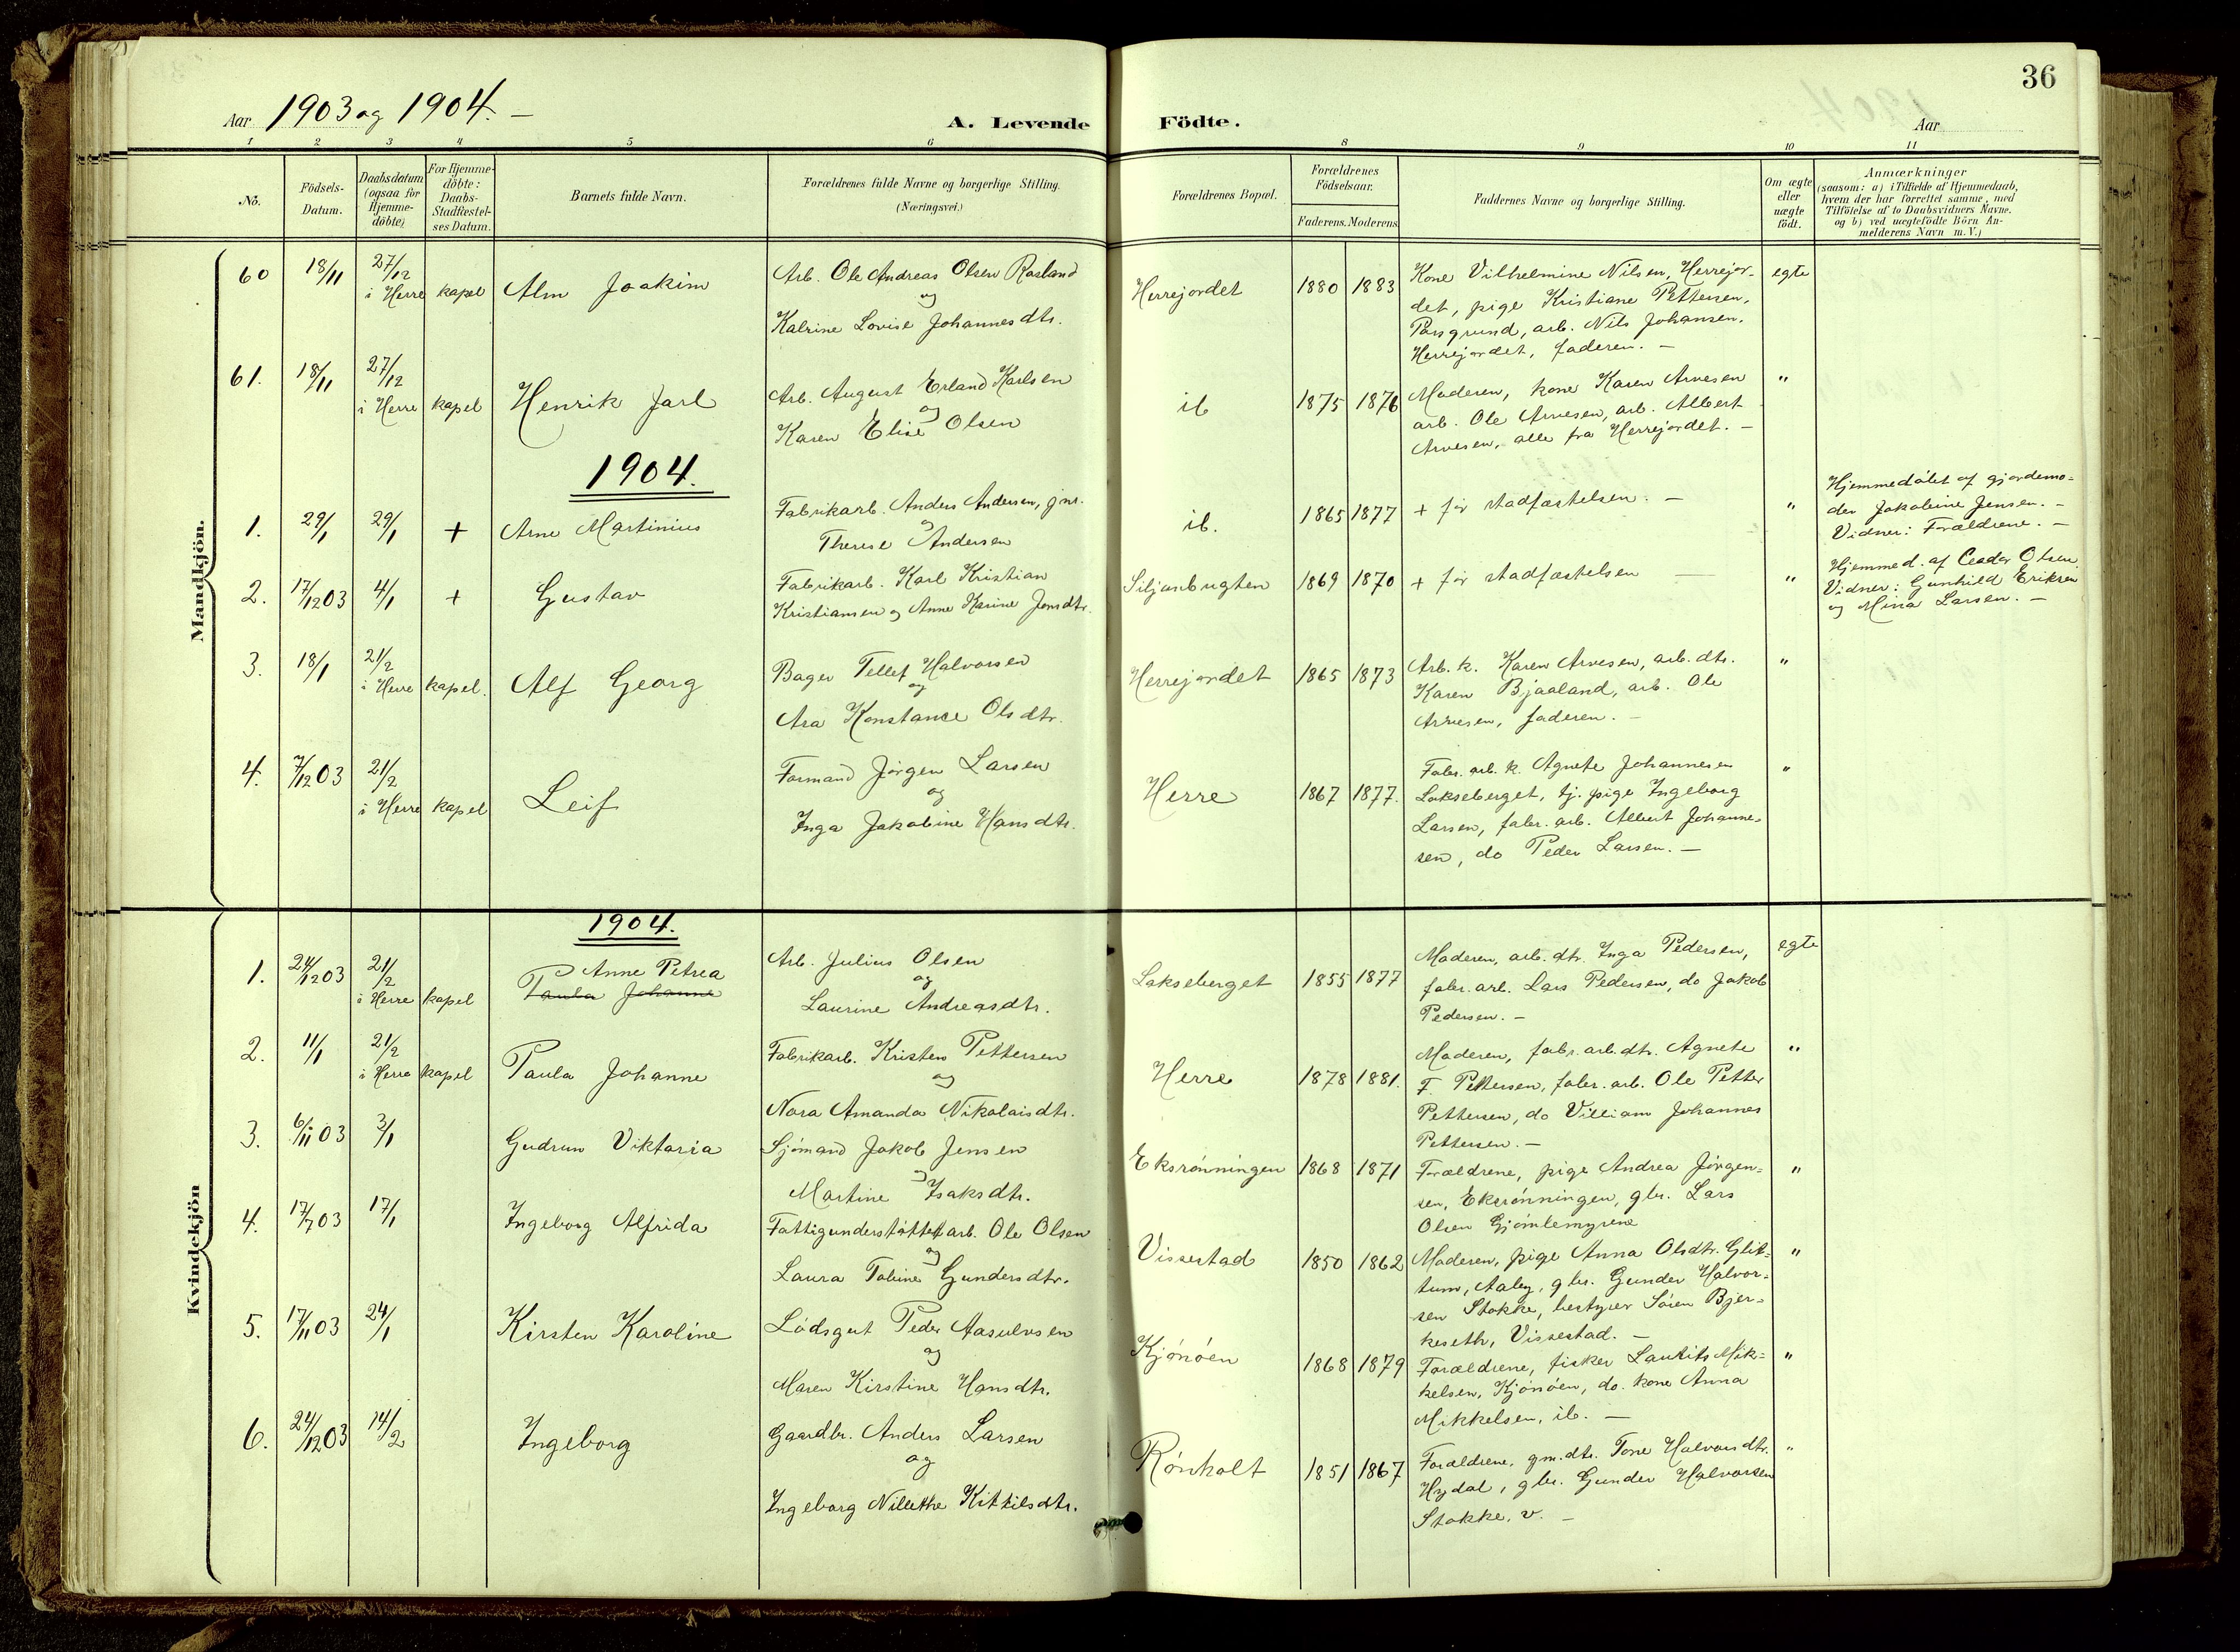 36
Aar 1903 og 1904. –
A. Levende Födte.
Aar
1 2 3 4 5 6 8 9 10 11
No.
Födsels-
Datum.
Daabsdatum
(ogsaa for
Hjemme-
döbte)
For Hjemme-
döbte:
Daabs-
Stadfæstel-
ses Datum.
Barnets fulde Navn.
Forældrenes fulde Navne og borgerlige Stilling.
(Næringsvei.)
Forældrenes Bopæl.
Forældrenes
Födselsaar.
Faderens. Moderens
Faddernes Navne og borgerlige Stilling.
Om ægte
eller
uægte
födt.
Anmærkninger
(saasom: a) i Tilfælde af Hjemmedaab,
hvem der har forrettet samme, med
Tilföielse af to Daabsvidners Navne.
og b) ved uægtefödte Börn An-
melderens Navn m. V.)
Mandkjön.
60 18/11 27/12
i Herre kapel
Alm Joakim
Arb. Ole Andreas Olsen Rasland
og
Katrine Lovise Johannesdtr.
Herrejordet
1880 1883
Kone Vilhelmine Nilsen, Herrejor-
det, pige Kristiane Pettersen,
Porsgrund, arb. Nils Johansen,
Herrejordet, faderen. –
egte
61. 18/11 27/12
i Herre kapel
Henrik Jarl
Arb. August Erland Karlsen
og
Karen Elise Olsen
ib
1875 1876
Moderen, kone Karen Arvesen
arb. Ole Arvesen, arb. Albert
Arvesen, alle fra Herrejordet. –
"
1904.
1. 29/1 29/1 +
Arne Martinius
Fabrikarb. Anders Andersen, jnr.
og
Therese Andersen
ib.
1865 1877
+ før stadfæstelsen. –
"
Hjemmedøbt af gjordemo-
der Jakobine Jensen. –
Vidner: Forældrene. –
2. 17/12 03 4/1 +
Gustav
Fabrikarb. Karl Kristian
Kristiansen og Anne Karine Jonsdtr.
Siljanbugten
1869 1870
+ før stadfæstelsen –
"
Hjemmed. af Olsen
Vidner: Gunhild Eriksen
og Mina Larsen. –
3. 18/1 21/2
i Herre kapel.
Alf Georg
Bager Tellef Halvorsen
og
Ara Konstance Olsdtr.
Herrejordet
1865 1873
Arb. k. Karen Arvesen, arb. dtr.
Karen Bjaaland, arb. Ole
Arvesen, faderen. –
"
4. 7/12 03 21/2
i Herre kapel
Leif
Formand Jørgen Larsen
og
Inga Jakobine Hansdtr.
Herre
1867 1877.
Fabr. arb. k. Agnete Johannesen
Lakseberget, tj. pige Ingeborg
Larsen, fabr. arb. Albert Johanne-
sen, do Peder Larsen. –
"
Kvindekjön
1904.
1. 24/12 03 21/2
i Herre kapel
Anne Petrea
Paula Johanne
Arb. Julius Olsen
og
Laurine Andreasdtr.
Lakseberget
1855 1877
Moderen, arb. dtr. Inga Pedersen,
fabr. arb. Lars Pedersen, do Jakob
Pedersen. –
egte
2. 11/1 21/2
i Herre kapel
Paula Johanne
Fabrikarb. Kristen Pettersen
og
Nora Amanda Nikolaisdtr.
Herre
1878 1881.
Moderen, fabr. arb. dtr. Agnete
F. Pettersen, fabr. arb. Ole Petter
Pettersen, do Villiam Johannes
Pettersen. –
"
3. 6/11 03 3/1
Gudrun Viktoria
Sjømand Jakob Jensen
og
Martine Isaksdtr.
Eksrønningen
1868 1871
Forældrene, pige Andrea Jørgen-
sen, Eksrønningen, gbr. Lars
Olsen Gjømlemyrene
"
4. 17/7 03 17/1
Ingeborg Alfrida
Fattigunderstøttet arb. Ole Olsen
og
Laura Tobine Gundersdtr.
Vissestad
1850 1862
Moderen, pige Anna Olsdtr. Glit-
tum, Aaby, gbr. Gunder Halvor-
sen Stokke, bestyrer Søren Bjer-
keseth, Vissestad. –
"
5. 17/11 03 24/1
Kirsten Karoline
Lodsgut Peder Aasulvsen
og
Maren Kirstine Hansdtr.
Kjønøen
1868 1879
Forældrene, fisker Laurits Mik-
kelsen, Kjønøen, do. kone Anna
Mikkelsen, ib. –
"
6. 24/12 03 14/2
Ingeborg
Gaardbr. Anders Larsen
og
Ingeborg Nillethe Kittilsdtr.
Rønholt
1851 1867
Forældrene, gm. dtr. Tone Halvorsdtr.
Hydal, gbr. Gunder Halvorsen
Stokke, v. –
"